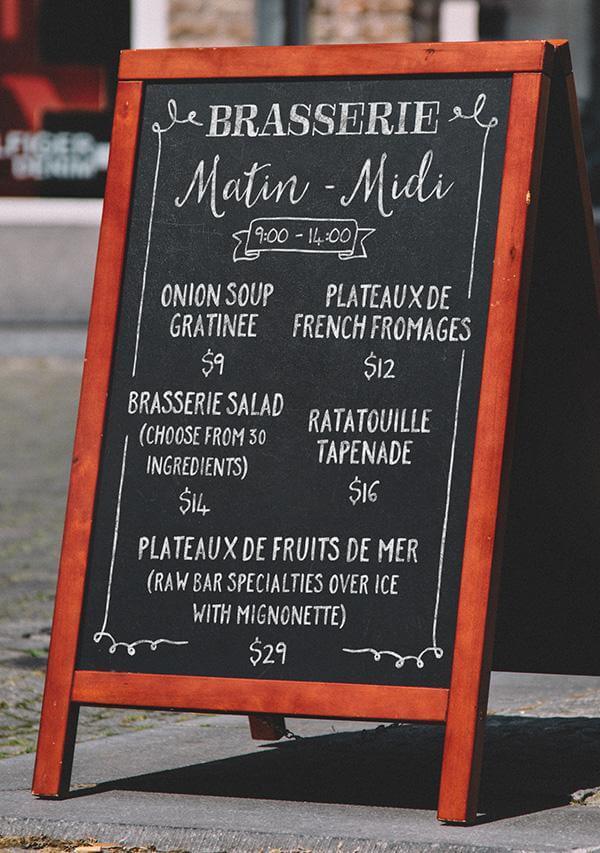 BRASSERIE
Matin - Midi
9:00 - 14:00
ONION SOUP
GRATINEE
$9
PLATEAUX DE
FRENCH FROMAGES
$12
BRASSERIE SALAD
(CHOOSE FROM 30
INGREDIENTS)
$14
RATATOUILLE
TAPENADE
$16
PLATEAUX DE FRUITS DE MER
(RAW BAR SPECIALTIES OVER ICE
WITH MIGNONETTE)
$29
LFIGER
DENIM